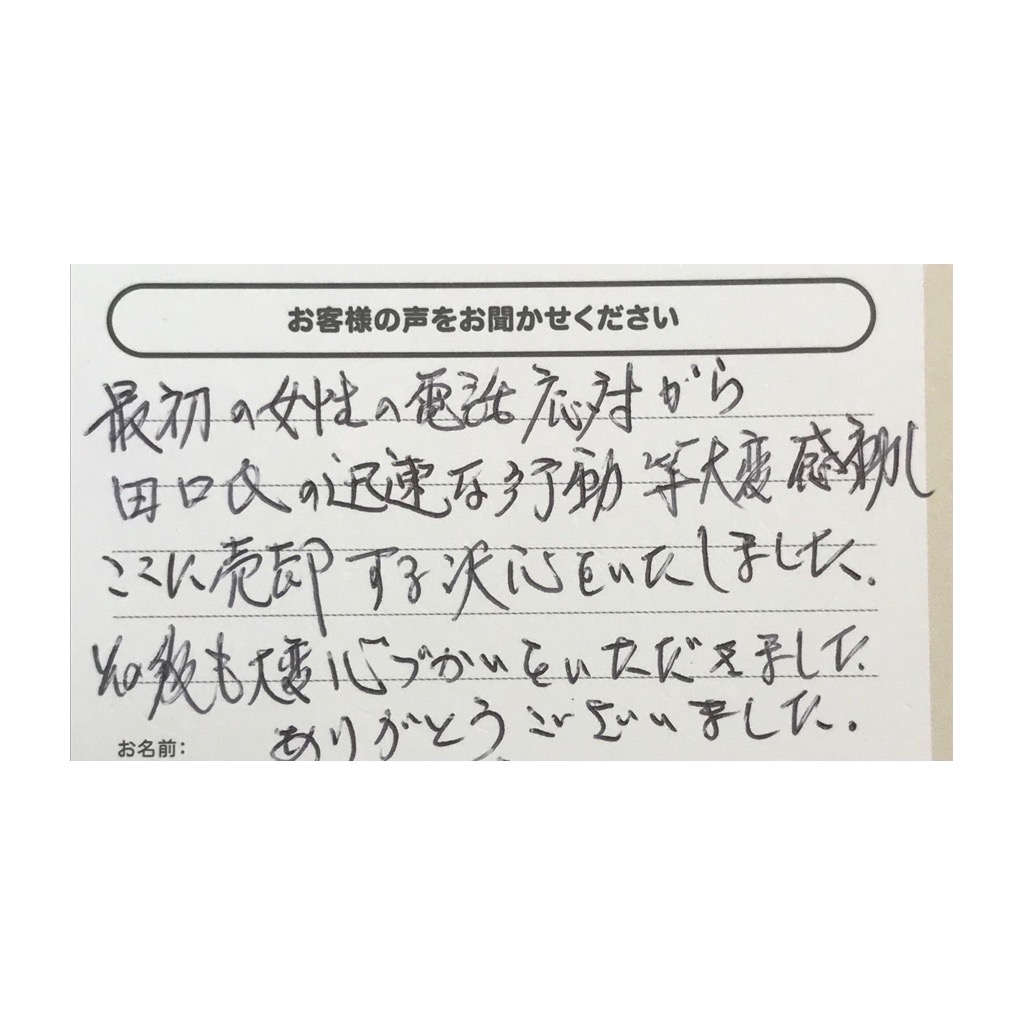 お客様の声をお聞かせください
最初の女性の電話応対から
田口氏の迅速な行動等大変感動し
ここに売却する決心をいたしました.
その後も大変心づかいをいただきました.
ありがとうございました.
お名前: